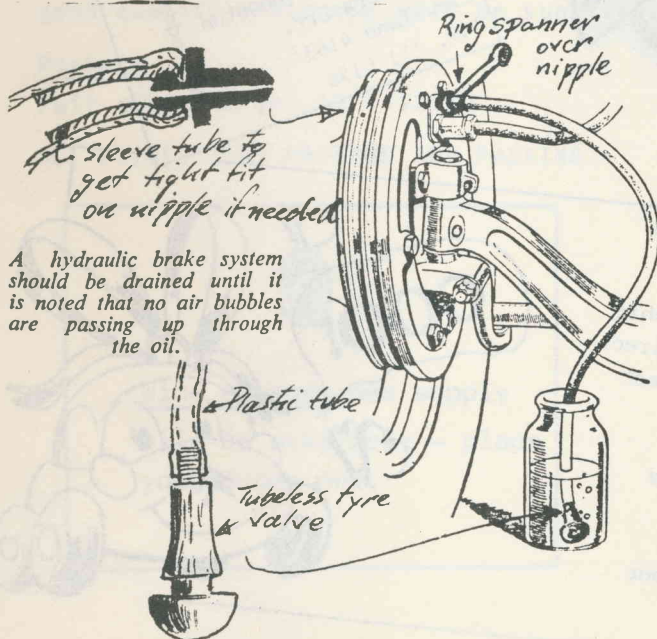 Ring spanner
over
nipple
sleeve tube to
get tight fit
on nipple if needed
A hydraulic brake system
should be drained until it
is noted that no air bubbles
are passing up through
the oil.
Plastic tube
Tubeless tyre
valve